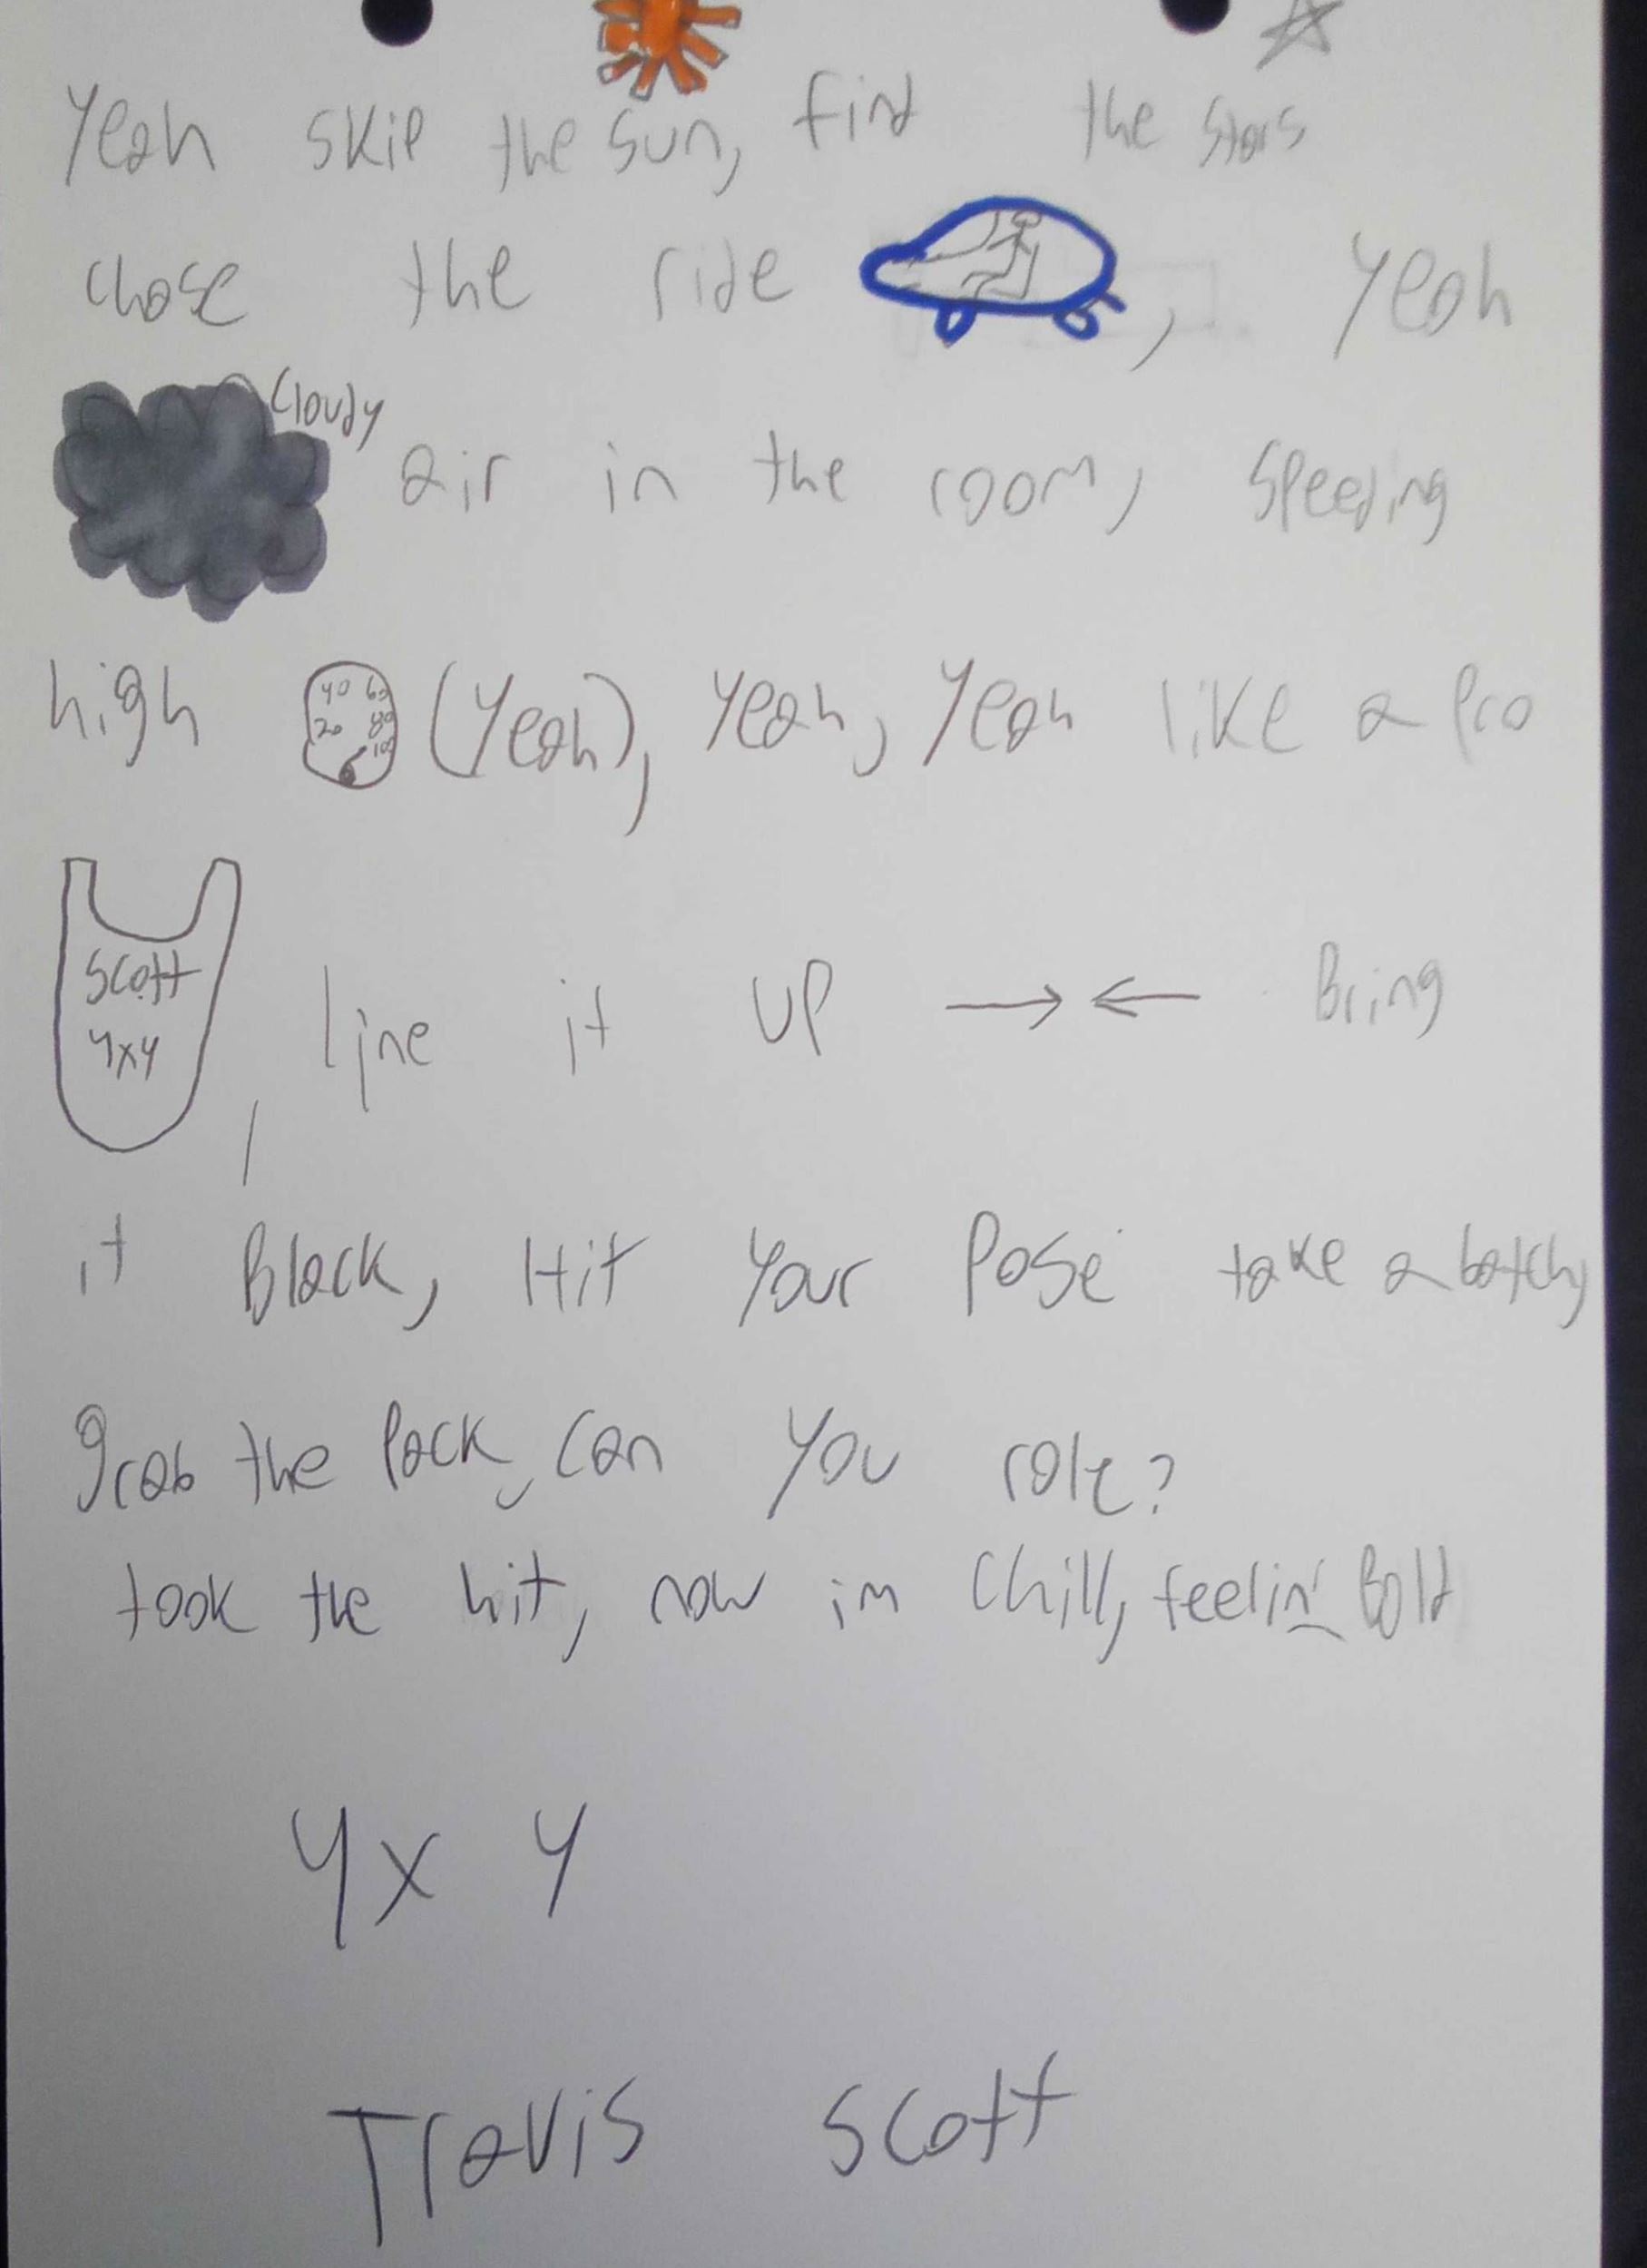 Yeah skip the sun, find the stars
chase the ride, yeah
Cloudy air in the room, speeding
high
40 60
20 80
100
(Yeah), yeah, yeah like a pro
Scott
4x4
, line it up → ← Bring
it Black, Hit your Pose take a batch,
grab the pack, can you role?
took the hit, now im chill, feelin' Bold
4x 4
Travis Scott